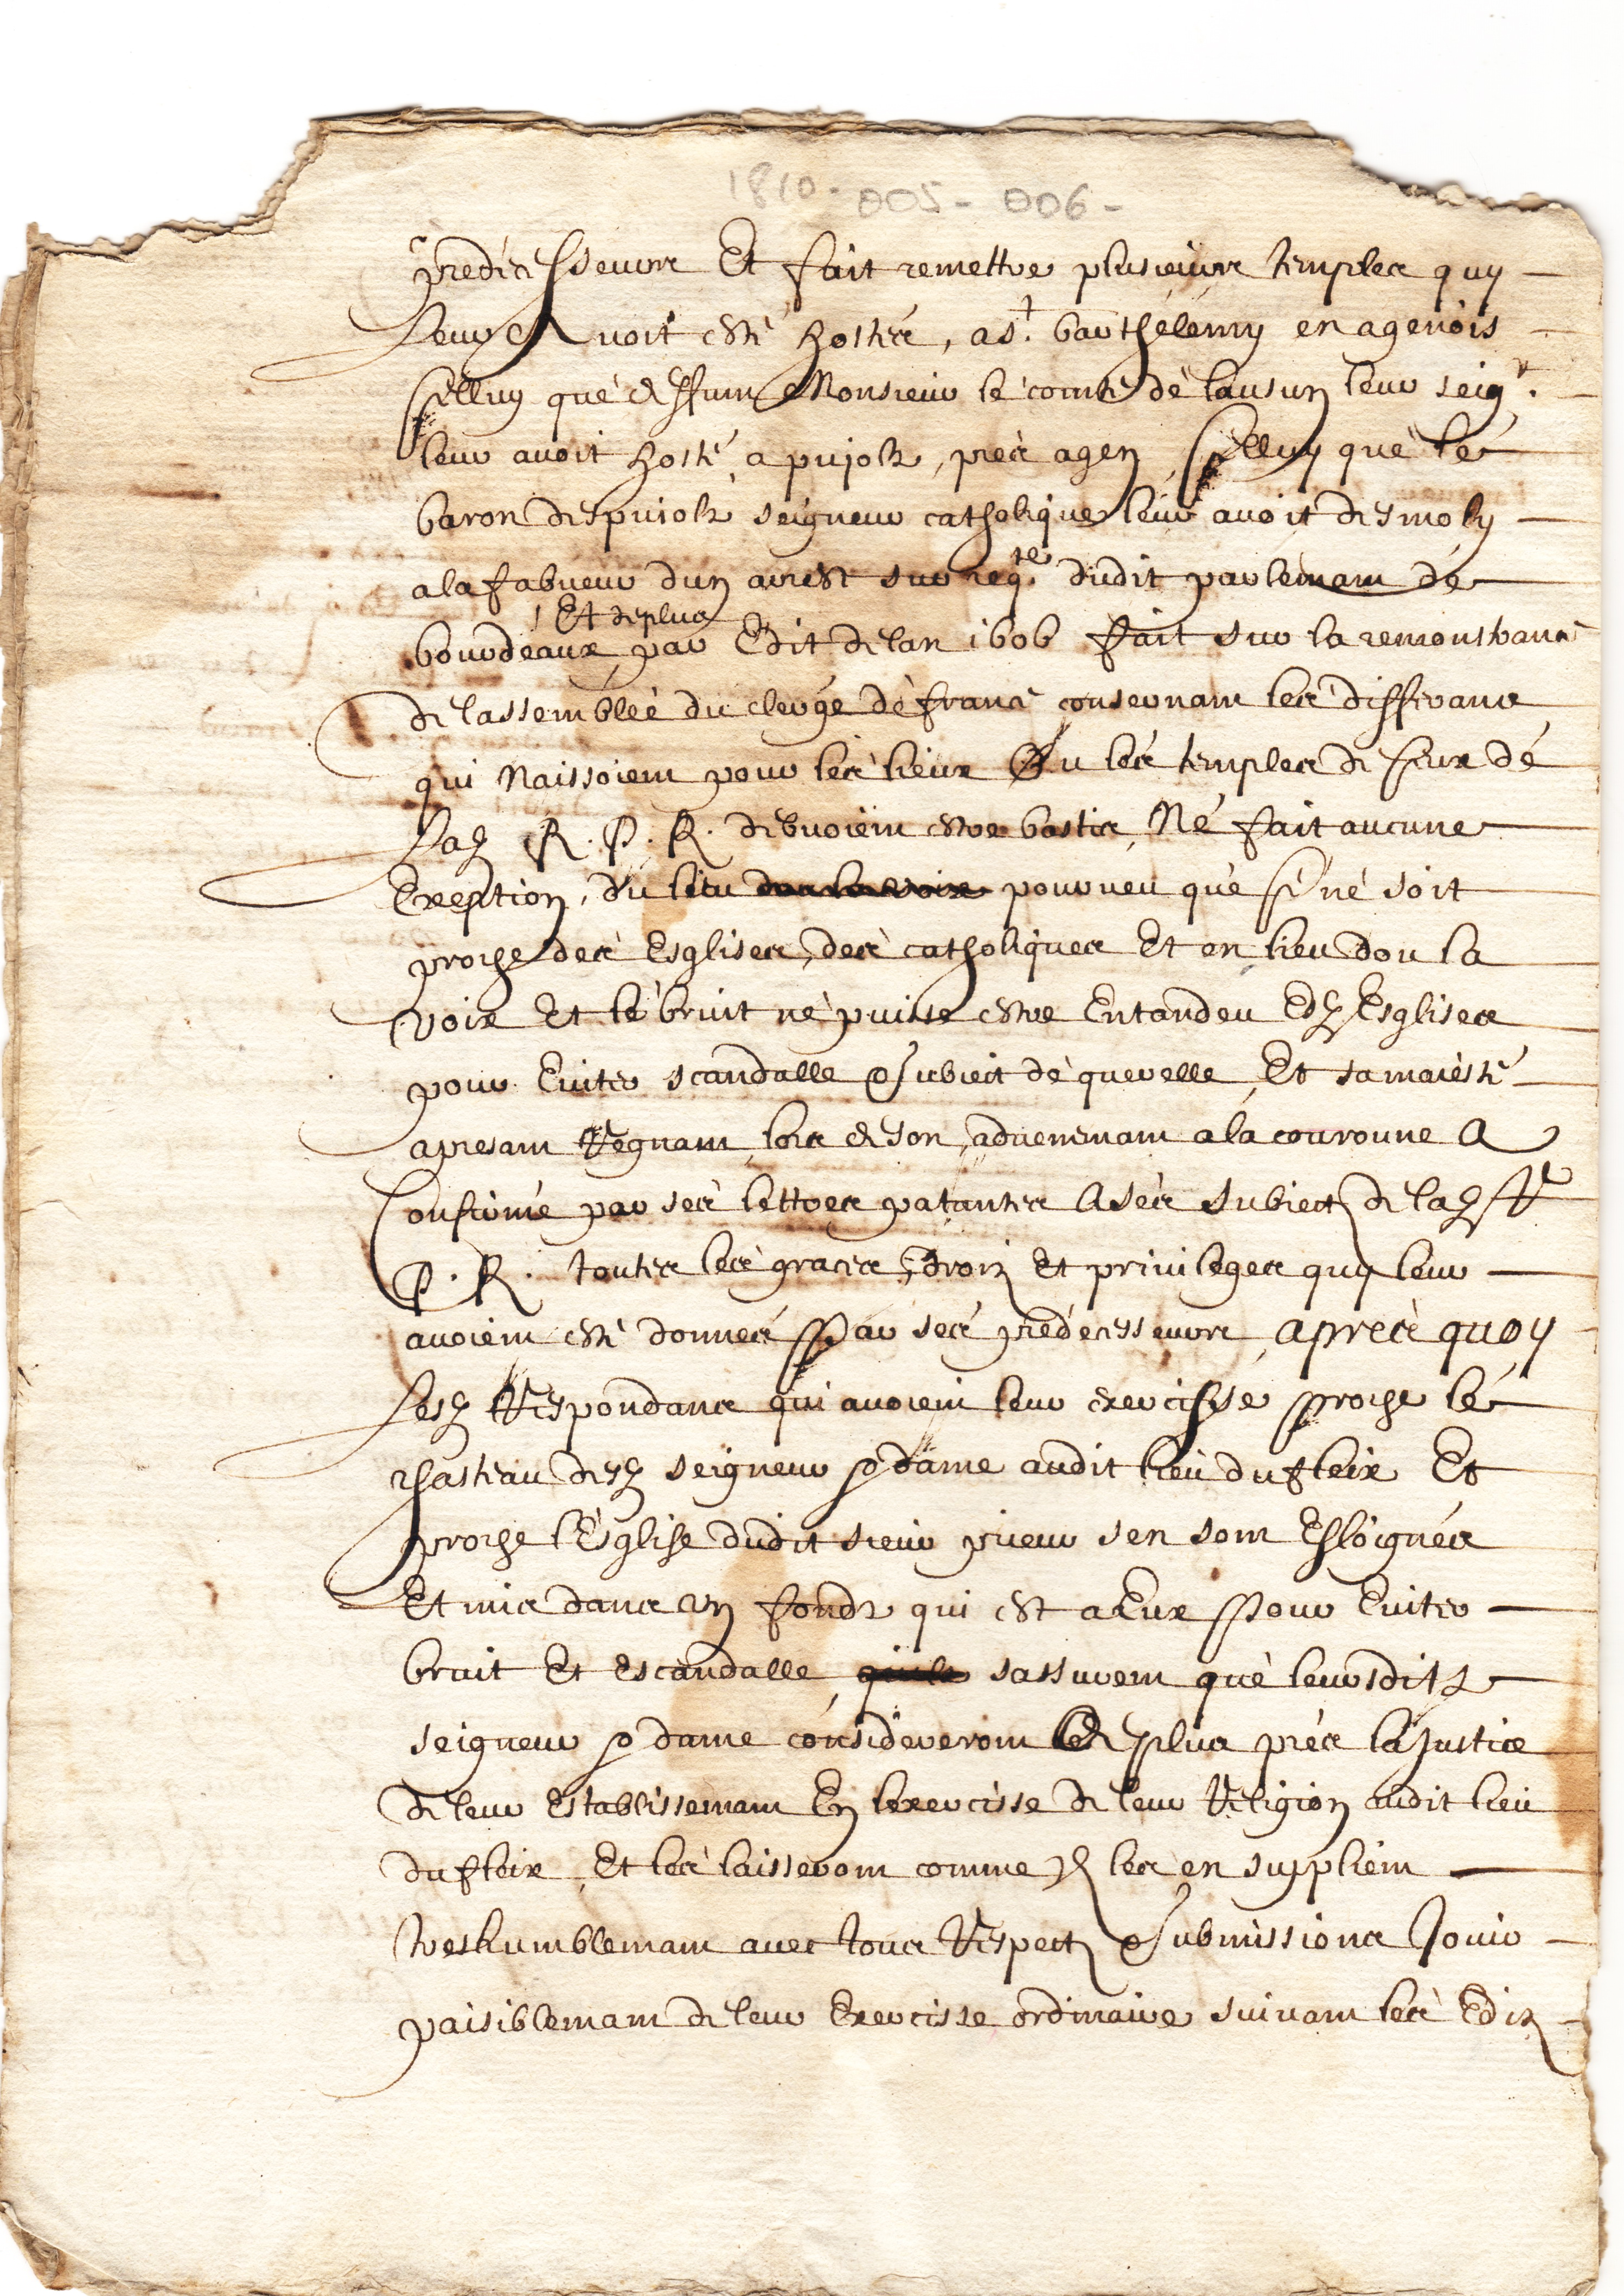 1810 - 005 - 006 -
predecesseurs Et fait remettre plusieurs temples quy
leur Avoit esté hostés, a St. barthélémy en agenois
selluy que deffunt Monsieur le comte de lausun leur seigr.
leur avoit hosté, a pujolz, prés agen, selluy que le
baron despuiolz seigneur catholique leur avoit desmoly
a la fabueur dun arrest sur reqte. dudit parlemant de
Et de plus
bourdeaux, par Edit de lan 1606 fait sur la remonstrance
de lassemblée du clergé de france consernant les differans
qui Naissoient pour les lieux Ou les temples de seux de
lad R. P. R. debvoient estre bastis, Né fait aucune
Exeption, du lieu pourveu que se né soit
proche des Esglises, des catholiques Et en lieu dou la
voix Et le bruit ne puisse estre Entandeu Esd Esglises
pour Eviter scandalle & subiect de querelle, Et sa maiesté
apresant Regnant, lors de son, advenemant a la couronne A
Confirmé par ses lettres patantes A ses subiectz de lad R
P. R. toutes les graces, droiz Et privileges quy leur
avoient esté donnés Par ses prédecesseurs, aprés quoy
Lesd Respondans qui avoient leur exercisse proche le
chasteau desd seigneur & dame audit lieu du fleix Et
proche l'Esglise dudit sieur prieur sen sont Esloignés
Et mis dans un fondz qui est a Eux Pour Eviter
bruit Et Escandalle, sassurent que leursditz
seigneur & dame considereront de plus prés la Justice
de leur Establissemant En lexercisse de leur Religion audit lieu
du fleix, Et les laisseront comme Ilz les en supplient
treshumblemant avec tous Respectz & submissions Jouir
paisiblemant de leur Exercisse ordinaire suivant les Ediz